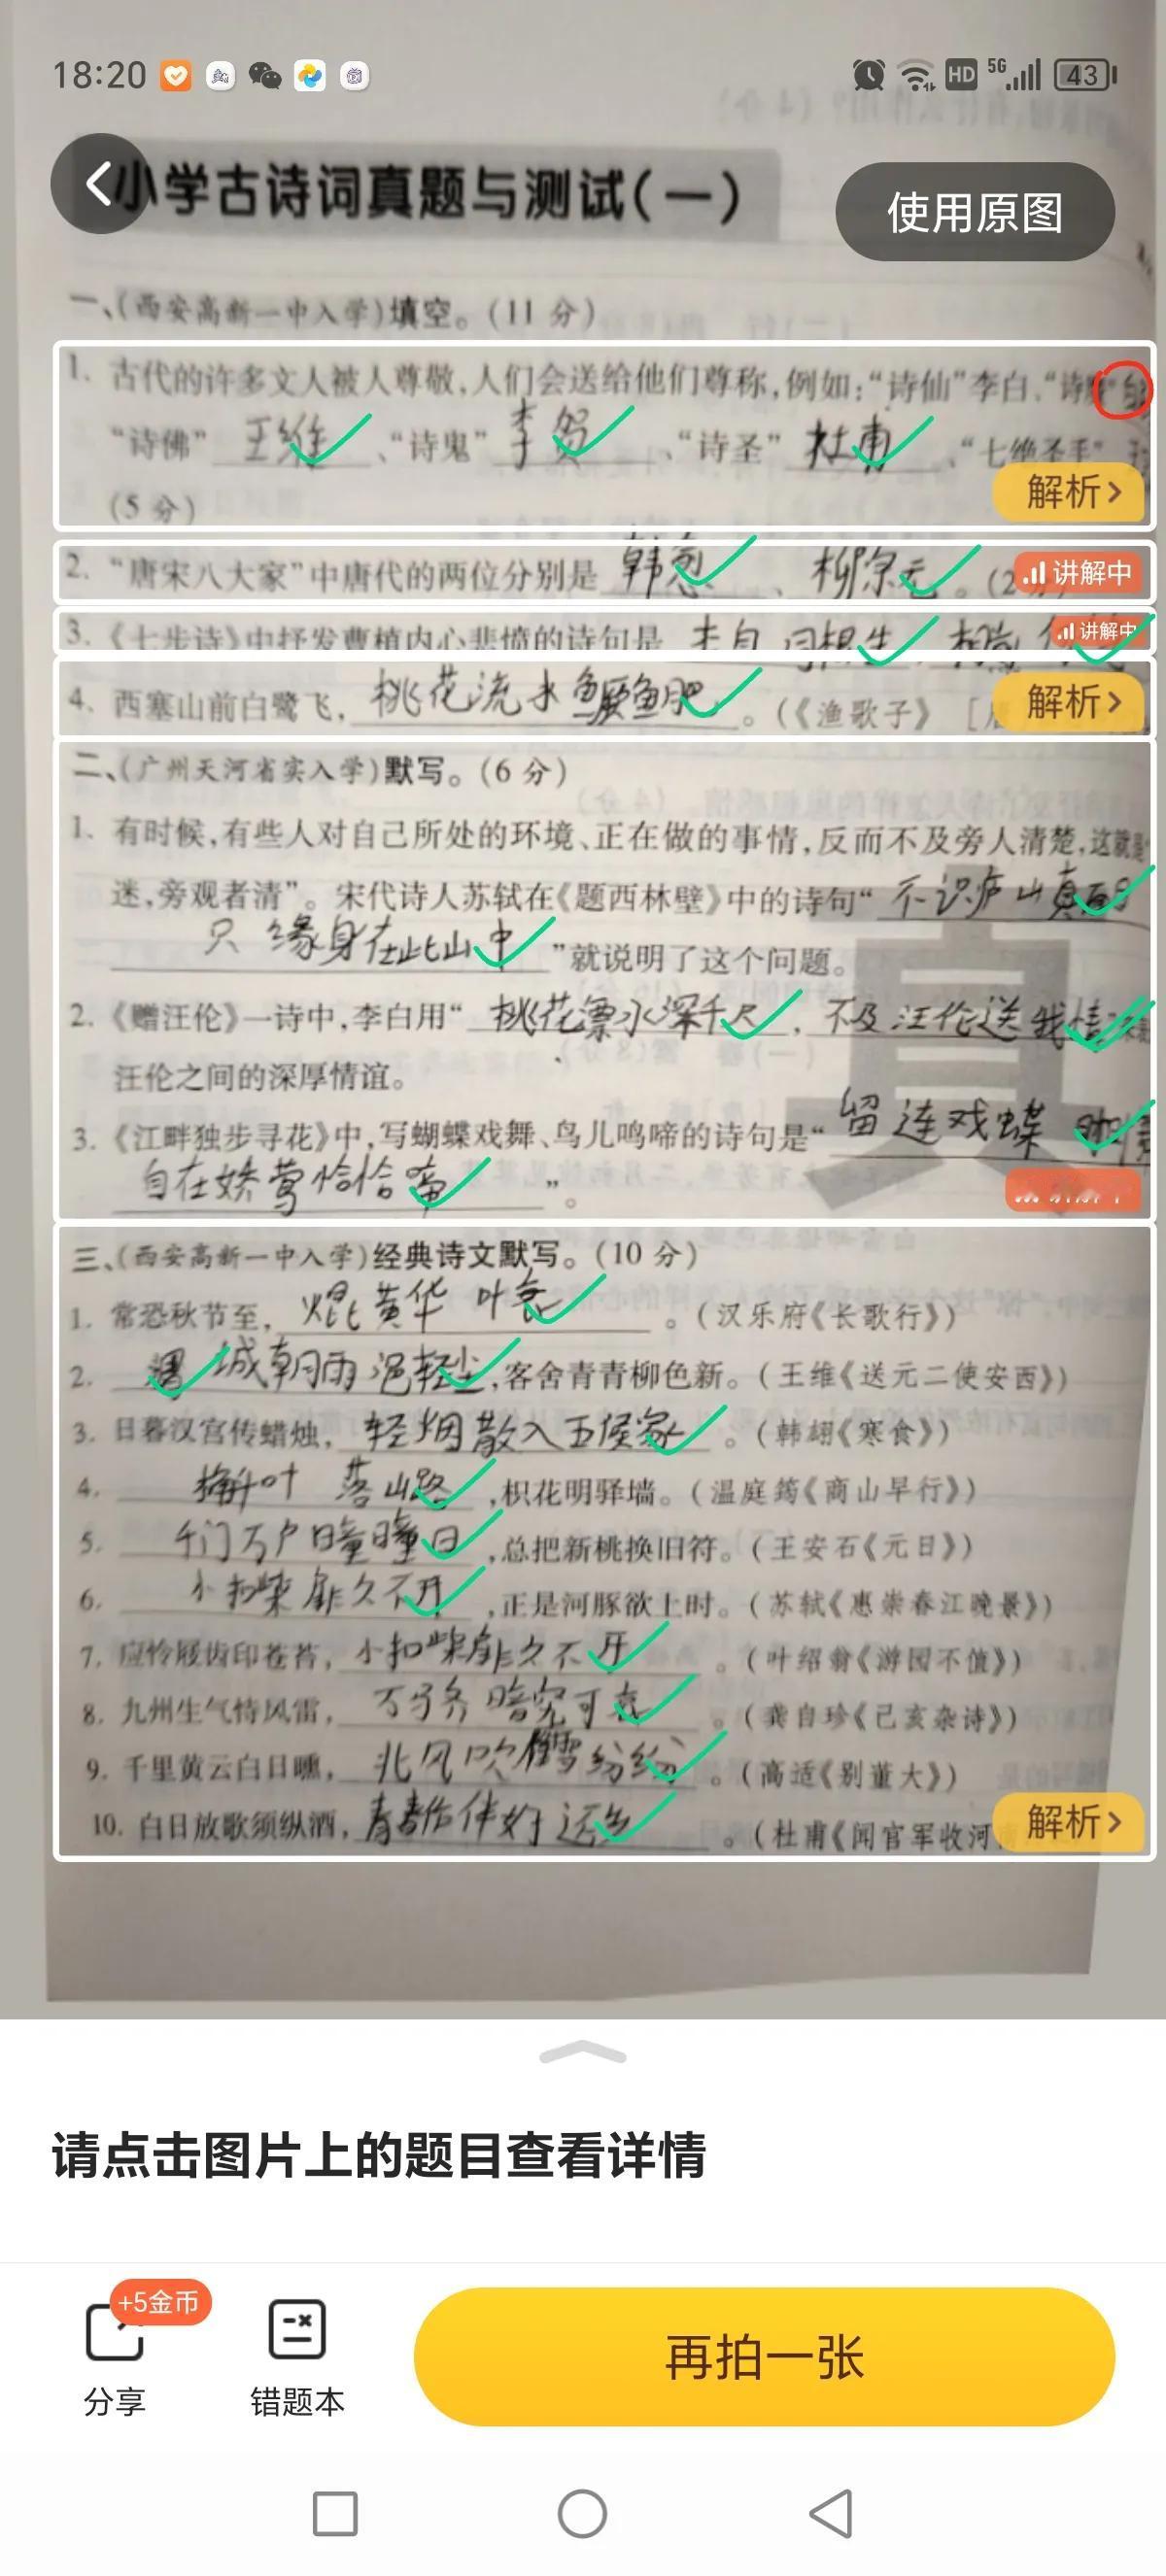 18:20
HD 5G 43
小学古诗词真题与测试(一)
使用原图
一、(西安高新一中入学)填空。(11 分)
1. 古代的许多文人被人尊敬,人们会送给他们尊称,例如:“诗仙”李白、“诗
“诗佛” 王维 、“诗鬼” 李贺 、“诗圣” 杜甫 、“七绝圣手”
解析
(5 分)
2. “唐宋八大家”中唐代的两位分别是 韩愈 、 柳宗元 。(2
讲解中
3.《七步诗》中抒发曹植内心悲愤的诗句是 本自同根生,相煎
讲解中
4. 西塞山前白鹭飞, 桃花流水鳜鱼肥 。(《渔歌子》 [唐
解析
二、(广州天河省实入学)默写。(6 分)
1. 有时候,有些人对自己所处的环境、正在做的事情,反而不及旁人清楚,这就是“
迷,旁观者清”。宋代诗人苏轼在《题西林壁》中的诗句“ 不识庐山真面
只缘身在此山中 ”就说明了这个问题。
2.《赠汪伦》一诗中,李白用“ 桃花潭水深千尺 , 不及汪伦送我情
汪伦之间的深厚情谊。
3.《江畔独步寻花》中,写蝴蝶戏舞、鸟儿鸣啼的诗句是“ 留连戏蝶
自在娇莺恰恰啼 ”。
真
三、(西安高新一中入学)经典诗文默写。(10 分)
1. 常恐秋节至, 焜黄华叶衰 。(汉乐府《长歌行》)
2. 渭城朝雨浥轻尘 ,客舍青青柳色新。(王维《送元二使安西》)
3. 日暮汉宫传蜡烛, 轻烟散入五侯家 。(韩翃《寒食》)
4. 槲叶落山路 ,枳花明驿墙。(温庭筠《商山早行》)
5. 千门万户曈曈日 ,总把新桃换旧符。(王安石《元日》)
6. 小扣柴扉久不开 ,正是河豚欲上时。(苏轼《惠崇春江晚景》)
7. 应怜屐齿印苍苔, 小扣柴扉久不开 。(叶绍翁《游园不值》)
8. 九州生气恃风雷, 万马齐喑究可哀 。(龚自珍《己亥杂诗》)
9. 千里黄云白日曛, 北风吹雁雪纷纷 。(高适《别董大》)
10. 白日放歌须纵酒, 青春作伴好还乡 。(杜甫《闻官军收河
解析
请点击图片上的题目查看详情
+5金币
分享
错题本
再拍一张